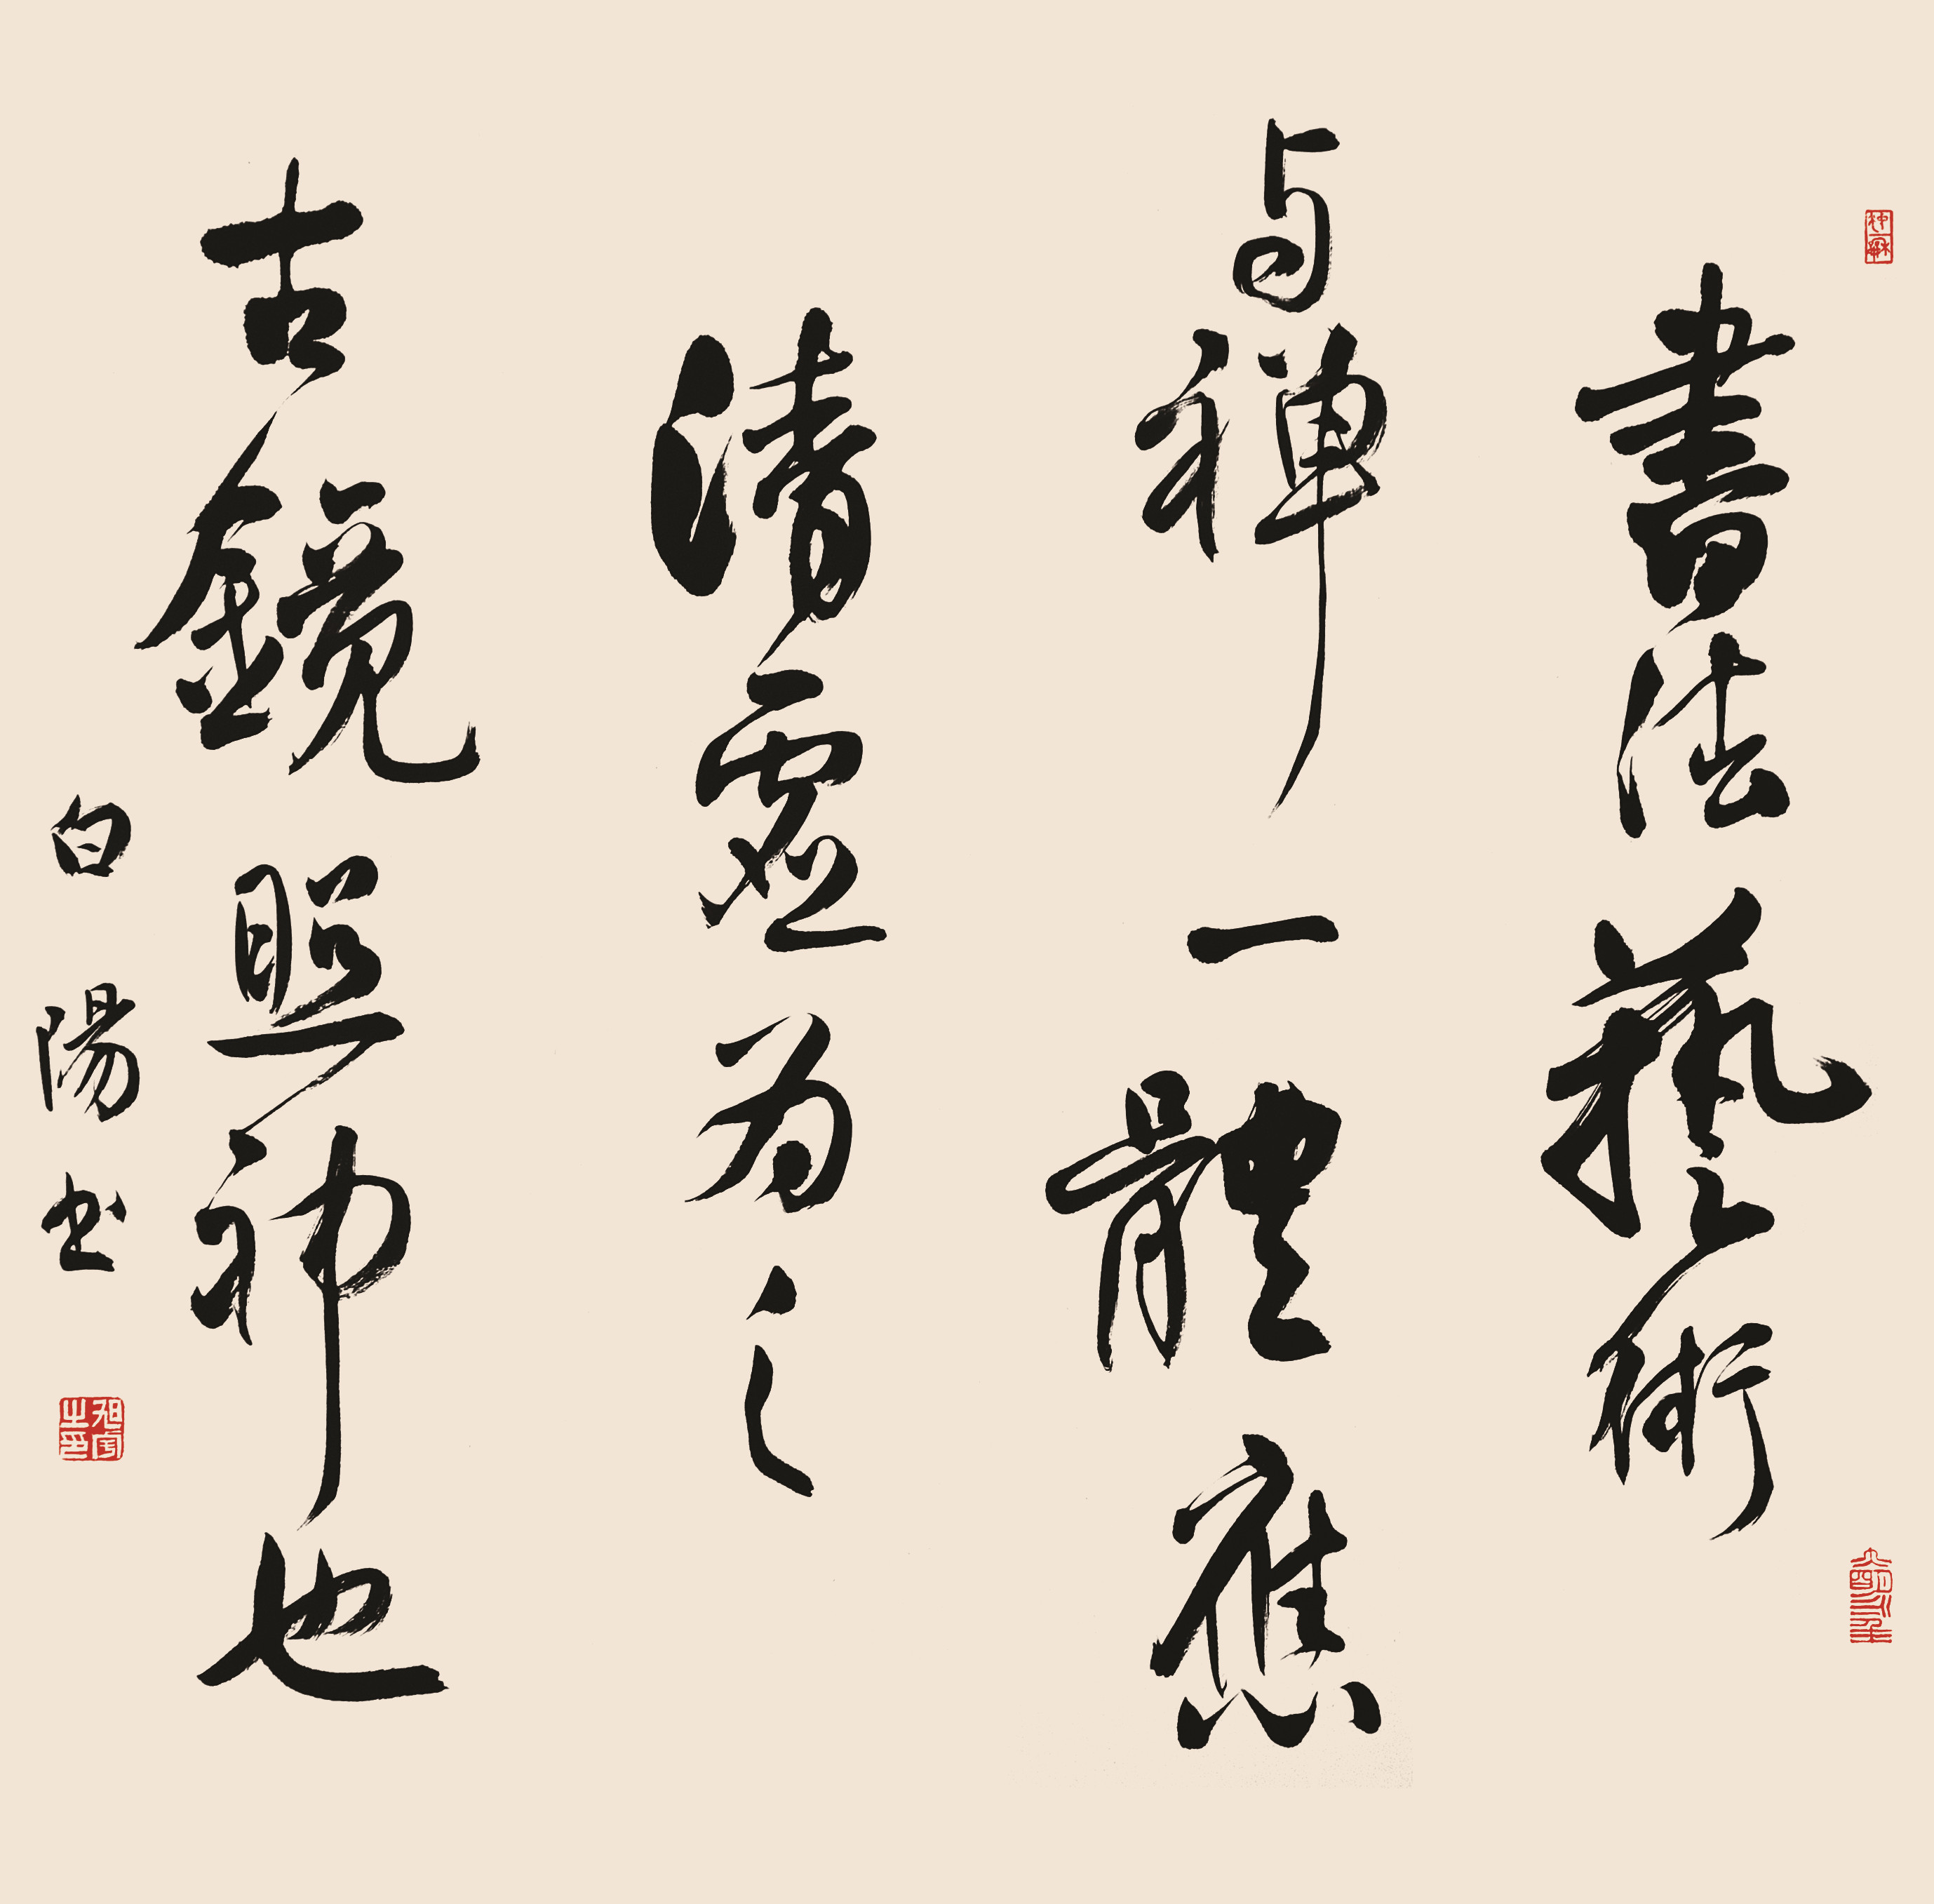 書法藝術
与禪一體應
清靈為之
古鏡照神也
白陽书